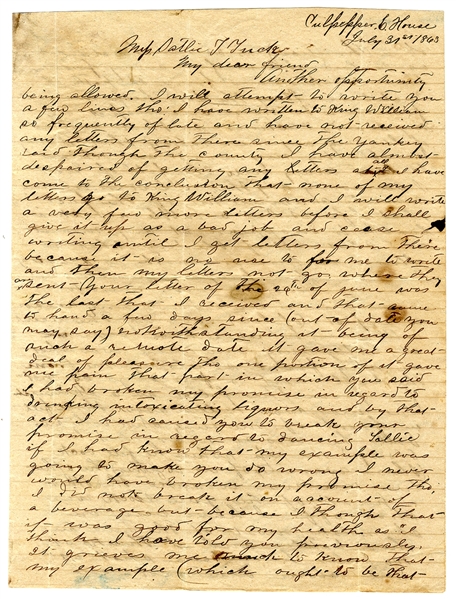 Culpepper C House
July 31st 1863
Miss Sallie T Tuck
My dear friend
Another opportunity
being allowed. I will attempt to write you
a few lines tho I have written to King William
so frequently of late and have not received
any letters from there since the Yankey
raid though the county I have almost
despaired of getting any letters at all I have
come to the conclusion that none of my
letters go to King William and I will write
a very few more letters before I shall
give it up as a bad job and cease
writing until I get letters from there
because it is no use to for me to write
and then my letters not go where they
are sent (your letter of the 29th of june was
the last that I received and that came
to hand a few days since (out of date you
may say) notwithstanding it being of
such a remote date it gave me a good
deal of pleasure tho one portion of it gave
me pain that part in which you said
I had broken my promise in regard to
drinking intoxicating liquors and by that
act I had caused you to break your
promise in regard to dancing Sallie
if I had know that my example was
going to make you do wrong I never
would have broken my promise tho
I did not break it on account of
a beverage but because I though that
it was good for my health as I
think I have told you previously.
it grieves me much to know that
my example (which ought to be that